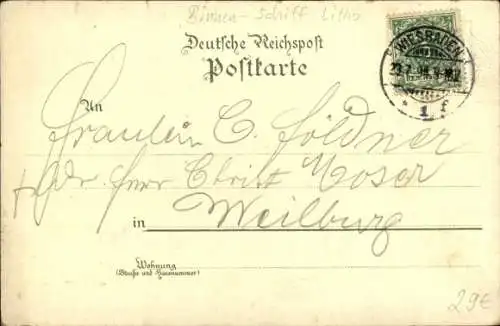 Binnen-Schiff Litho
Deutsche Reichspost
Postkarte
WIESBADEN
1 f
An
Fräulein C. Földner
Adr. Herr Christ Moser
in Weilburg
Wohnung
(Straße und Hausnummer)
29€